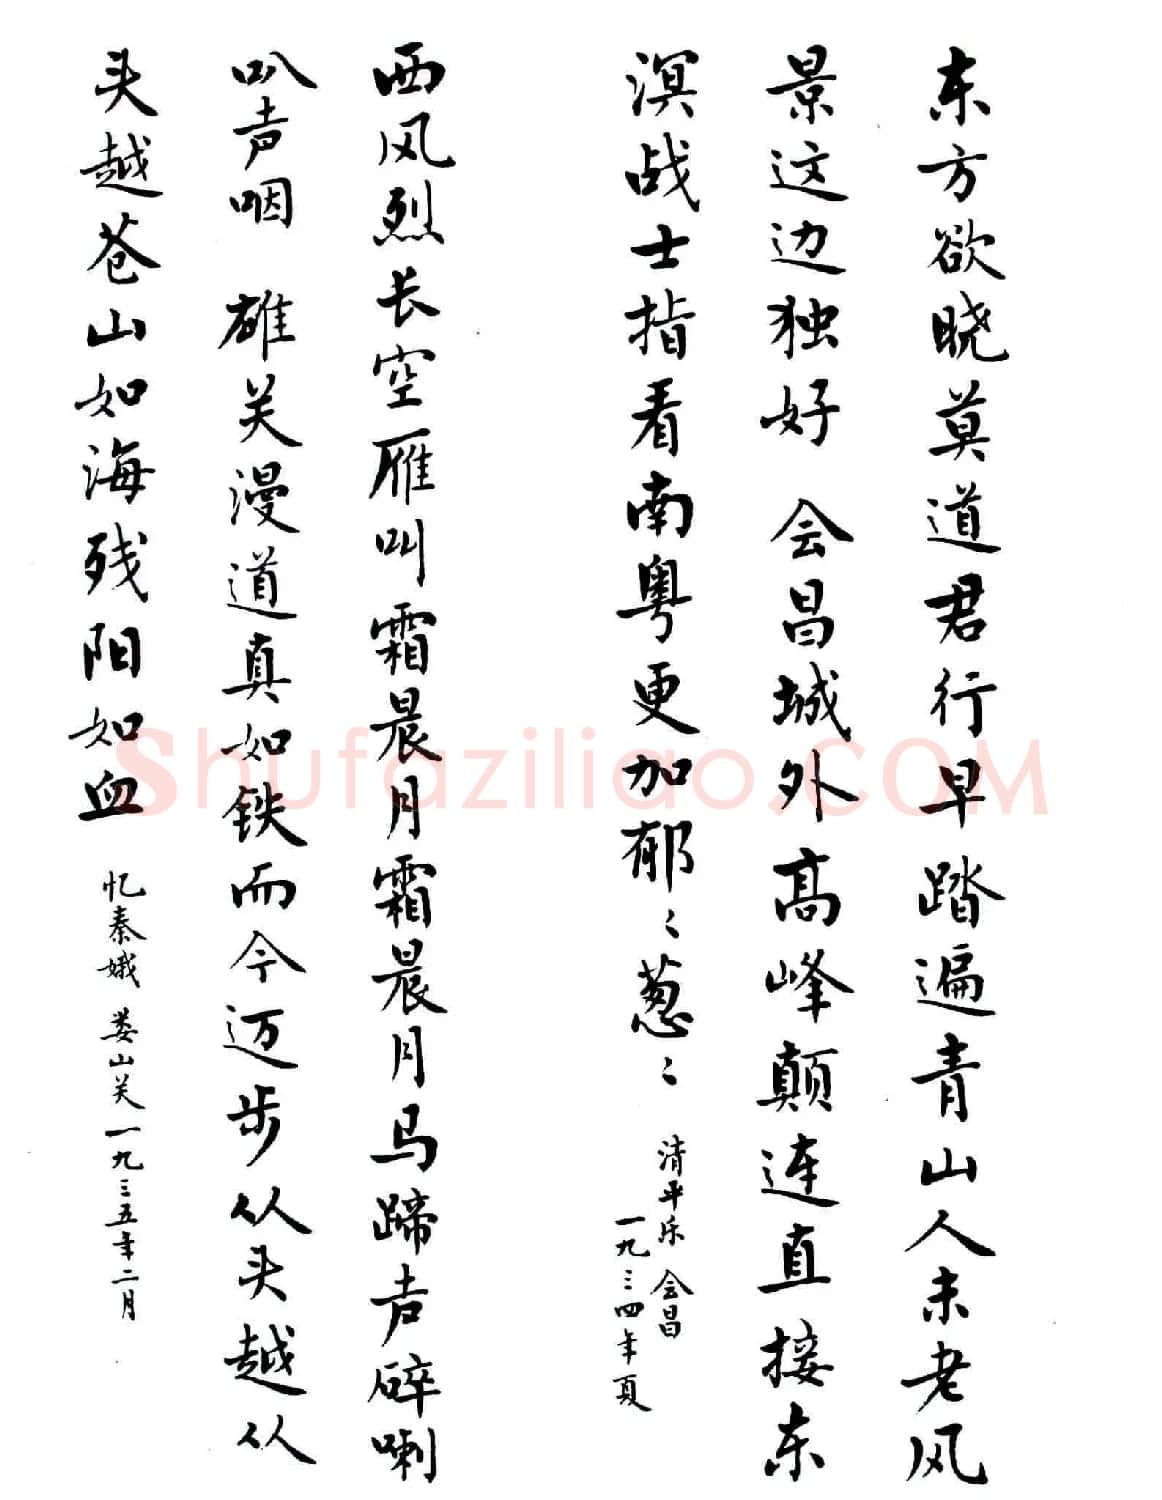 东方欲晓莫道君行早踏遍青山人未老风
景这边独好 会昌城外高峰颠连直接东
溟战士指看南粤更加郁〻葱〻
清平乐 会昌
一九三四年夏
西风烈长空雁叫霜晨月霜晨月马蹄声碎喇
叭声咽 雄关漫道真如铁而今迈步从头越从
头越苍山如海残阳如血
忆秦娥 娄山关一九三五年二月
Shufaziliao.COM